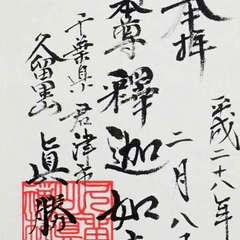 奉拝
平成二十八年
二月八
本尊 釋迦如
千葉県君津市
久留里 真勝